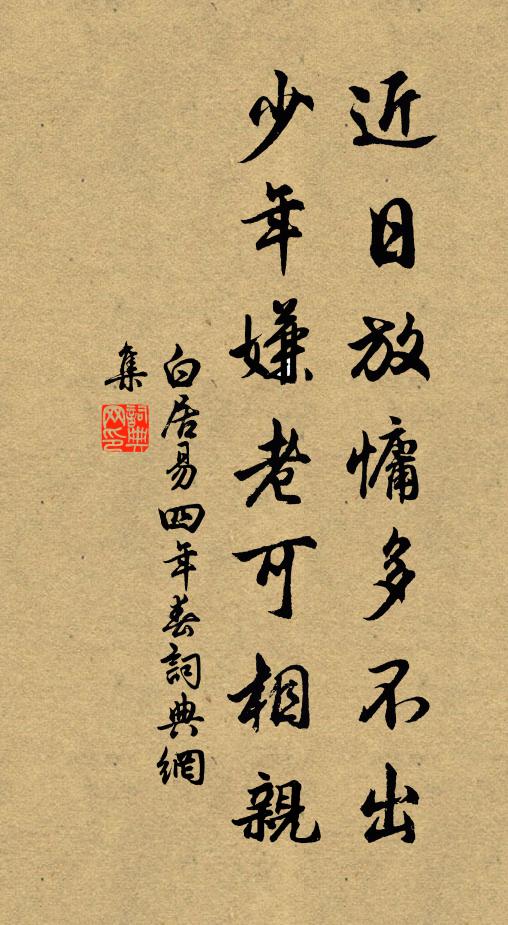 近日放慵多不出
少年嫌老可相親
白居易四年春詞典網
集
詞典
网印